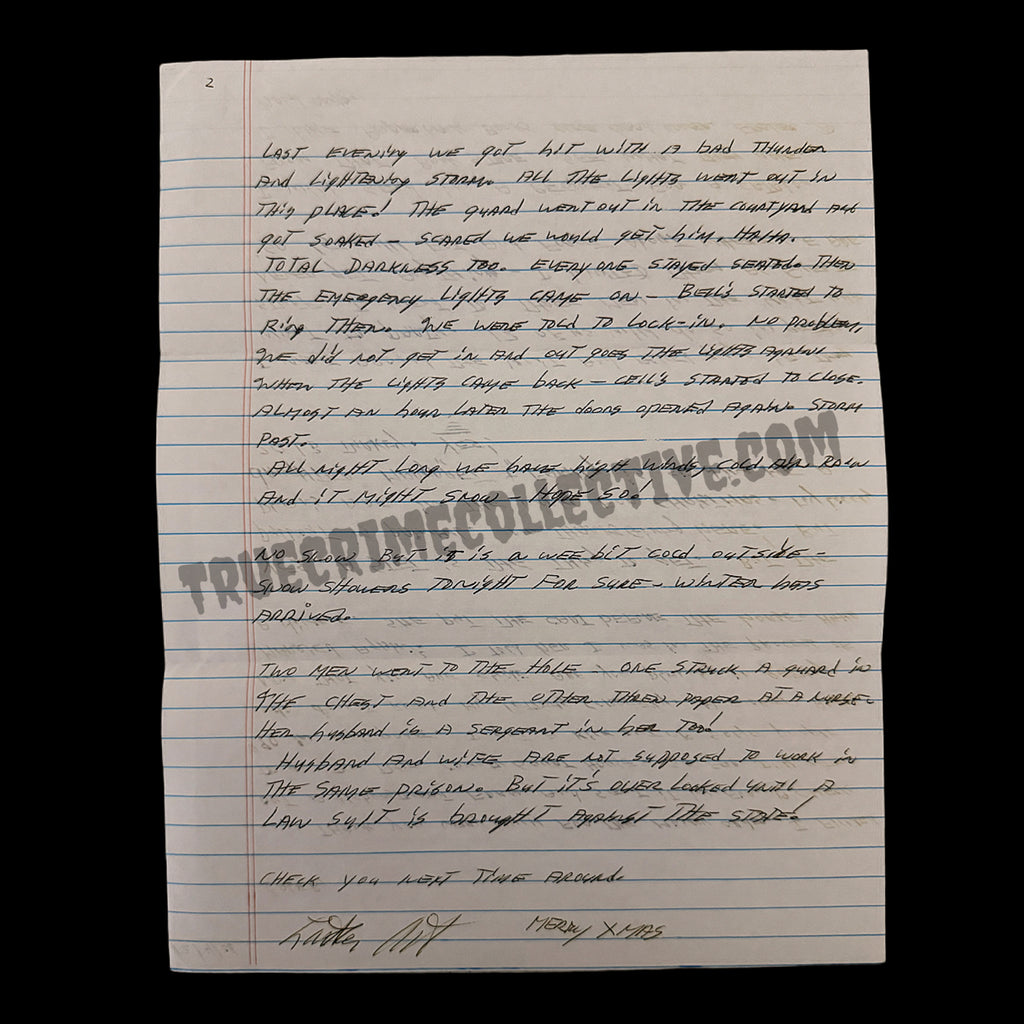 2
LAST EVENING WE GOT HIT WITH A BAD THUNDER
AND LIGHTENING STORM. ALL THE LIGHTS WENT OUT IN
THIS PLACE! THE GUARD WENT OUT IN THE COURTYARD AND
GOT SOAKED - SCARED WE WOULD GET HIM, HAHA.
TOTAL DARKNESS TOO. EVERYONE STAYED SEATED. THEN
THE EMERGENCY LIGHTS CAME ON - BELL'S STARTED TO
RING THEN. WE WERE TOLD TO LOCK-IN. NO PROBLEM,
WE DID NOT GET IN AND OUT GOES THE LIGHTS AGAIN!
WHEN THE LIGHTS CAME BACK - CELL'S STARTED TO CLOSE.
ALMOST AN HOUR LATER THE DOORS OPENED AGAIN. STORM
PAST.
ALL NIGHT LONG WE HAVE HIGH WINDS, COLD AIR RAIN
AND IT MIGHT SNOW - HOPE SO!
TRUECRIMECOLLECTIVE.COM
NO SNOW BUT IT IS A WEE BIT COLD OUTSIDE -
SNOW SHOWERS TONIGHT FOR SURE - WINTER HAS
ARRIVED.
TWO MEN WENT TO THE HOLE - ONE STRUCK A GUARD IN
THE CHEST AND THE OTHER THREW PAPER AT A NURSE -
HER HUSBAND IS A SERGEANT IN HER TOO!
HUSBAND AND WIFE ARE NOT SUPPOSED TO WORK IN
THE SAME PRISON. BUT IT'S OVER LOOKED UNTIL A
LAW SUIT IS BROUGHT AGAINST THE STATE!
CHECK YOU NEXT TIME AROUND.
MERRY XMAS